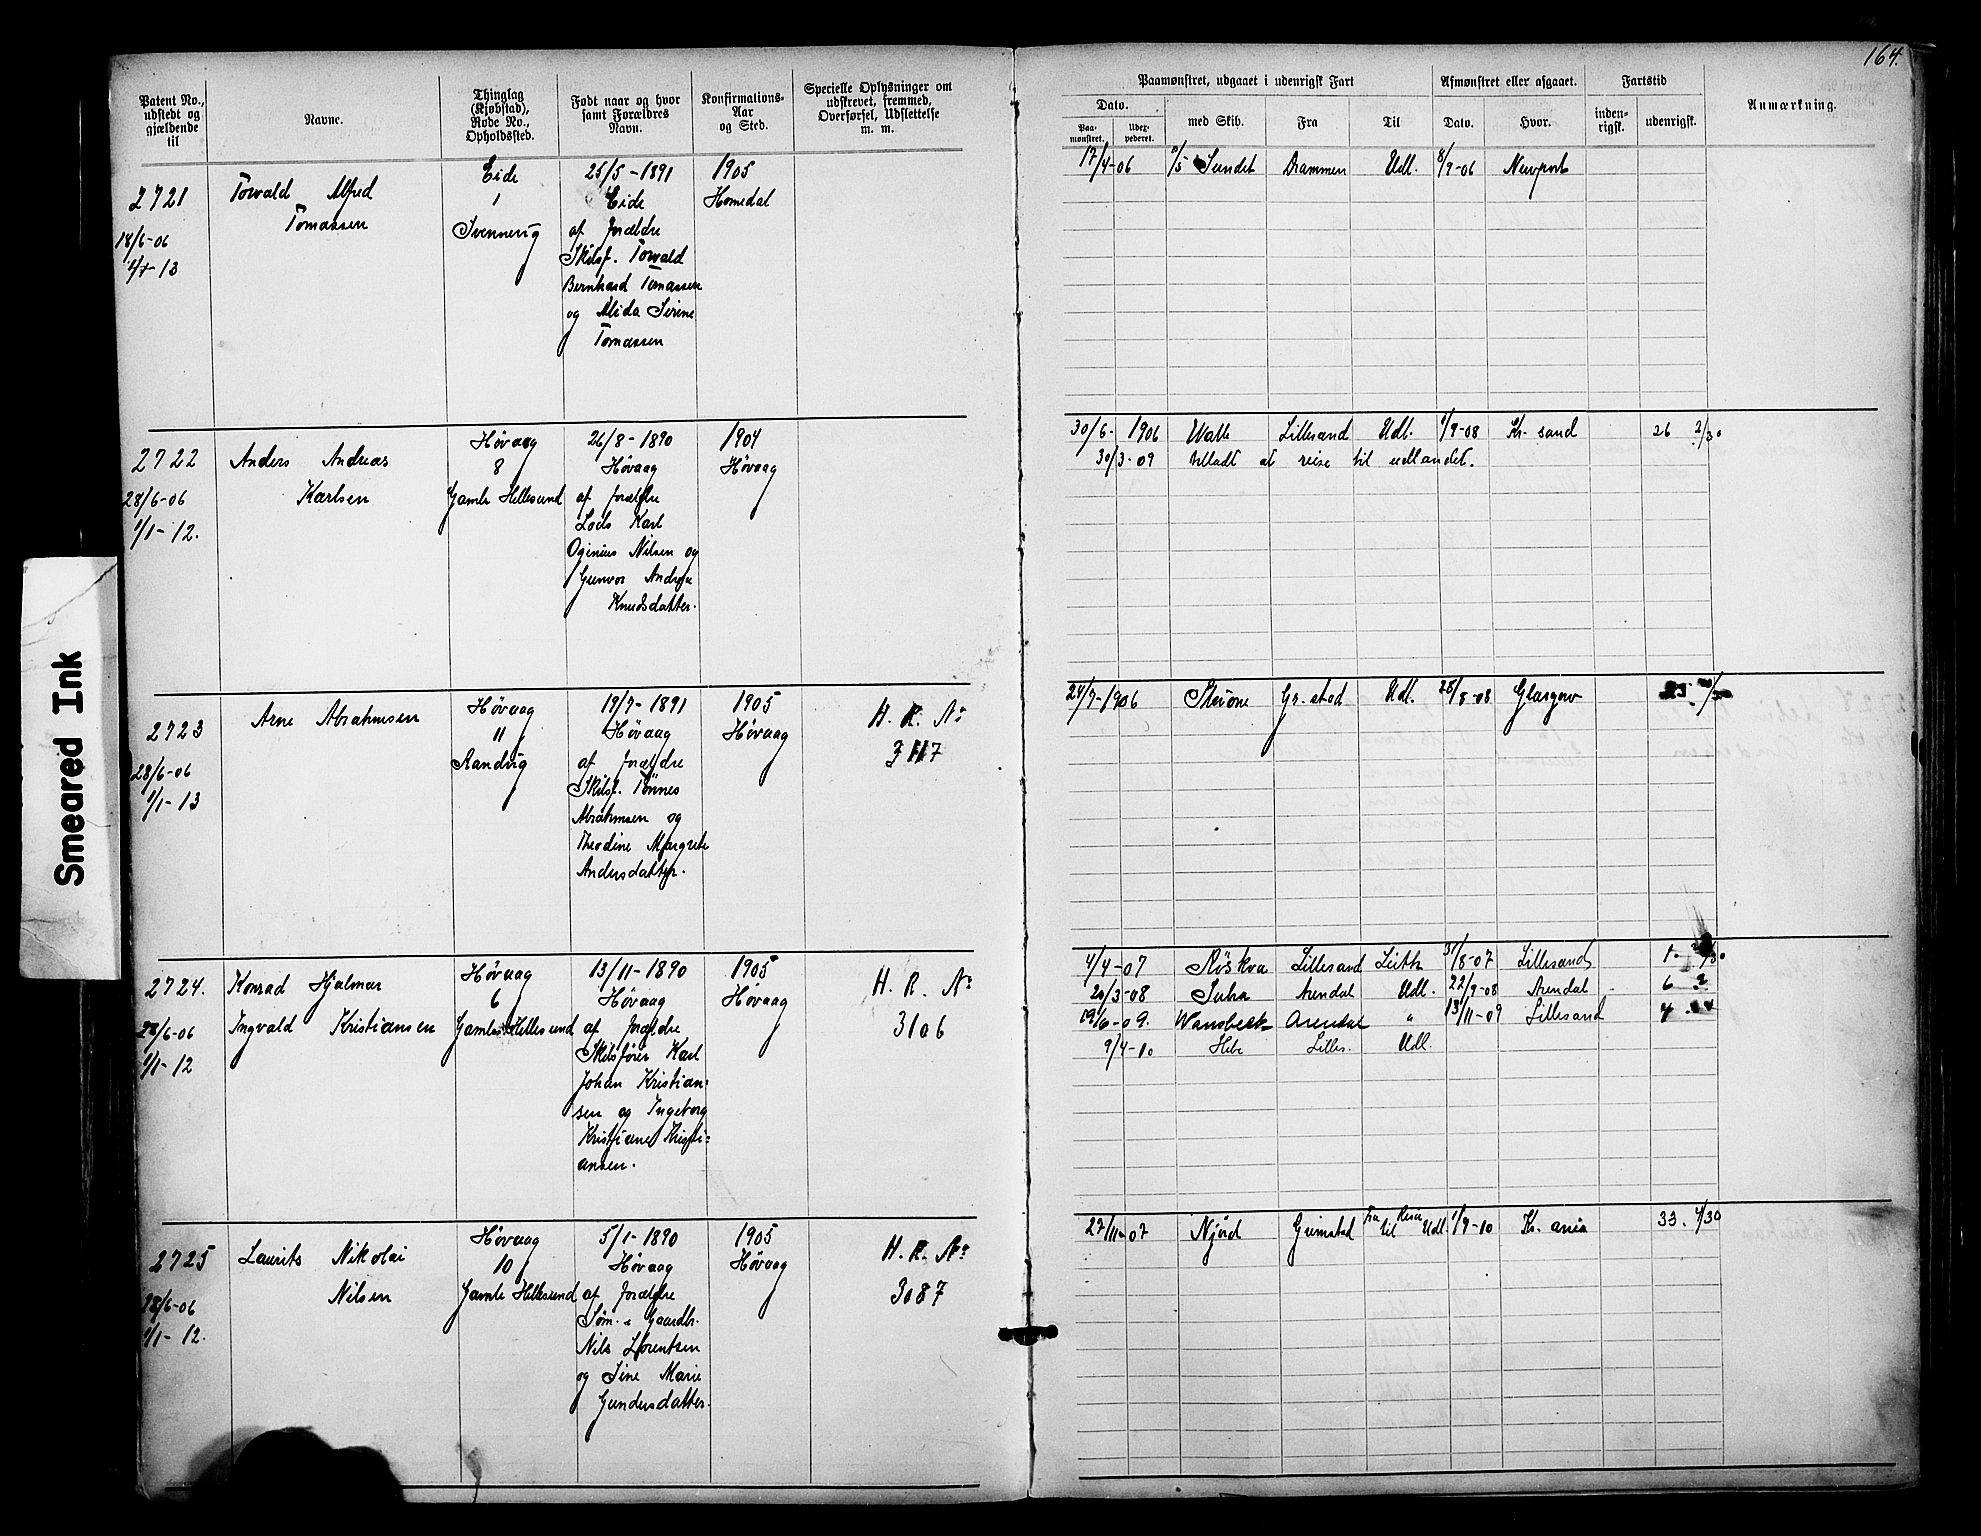 164.
Patent No., udstedt og gjældende til
Navne.
Thinglag (Kjøbstad), Rode No., Opholdssted.
Født naar og hvor samt Forældres Navn.
Konfirmations-Aar og Sted.
Specielle Oplysninger om udskrevet, fremmed, Overførsel, Udslettelse m. m.
Paamønstret, udgaaet i udenrigsk Fart
Afmønstret eller afgaaet.
Fartstid
Anmærkning.
Dato.
Paa-mønstret.
Udex-pederet.
med Skib.
Fra
Til
Dato.
Hvor.
inden-rigsk.
udenrigsk.
2721
18/6-06
Torvald Alfred
Tomassen
Eide
1
Svennevig
25/5-1891
Eide
af forældre
Skibsf. Torvald
Bernhard Tomassen
og Alida Serine
Tomassen
1905
Homedal
17/4-06 Sundet Drammen Udl. 8/9-06 Newport
2722
28/6-06
1/1-12.
Anders Andreas
Karlsen
Høvaag
8
Gamle Hellesund
26/8-1890
Høvaag
af forældre
Lods Karl
Oginius Nilsen og
Gunvor Andrea
Knudsdatter.
1904
Høvaag
30/6-1906 Walle Lillesand Udl. 1/9-08 Kr. sand 26 2/30
30/3-09 tilladt at reise til udlandet.
2723
28/6-06
1/1-13
Arne Abrahmsen
Høvaag
11
Randvig
19/7-1891
Høvaag
af forældre
Skibsf. Tønnes
Abrahmsen og
Theodine Margrete
Andersdatter.
1905
Høvaag
H. R. No
3117
24/7-1906 Gr. stad Udl. 28/8-08 Glasgow
2724.
28/6-06
1/1-12
Konrad Hjalmar
Ingvald Kristiansen
Høvaag
6
Gamle Hellesund
13/11-1890
Høvaag
af forældre
Skibsfører Karl
Johan Kristian-
sen og Ingeborg
Kristiane Kristi-
ansen.
1905
Høvaag
H. R. No
3106
4/4-07 Röskva Lillesand Leith 31/8-07 Lillesand
20/3-08 Arendal Udl. 22/9-08 Arendal 6
19/6-09. Wansbeck Arendal " 13/11-09 Lillesand 4
9/4-10 Hebe Lilles. Udl.
2725
28/6-06
1/1-12.
Laurits Nikolai
Nilsen
Høvaag
10
Gamle Hellesund
5/1-1890
Høvaag
af forældre
Søm. & Gaardbr.
Nils Lorentsen
og Sine Marie
Gundersdatter.
1905
Høvaag
H. R. No
3087
27/11-07 Njörd Grimstad Fra Reise til Udl. 1/9-10 Kr. ania 33. 4/30
Smeared Ink